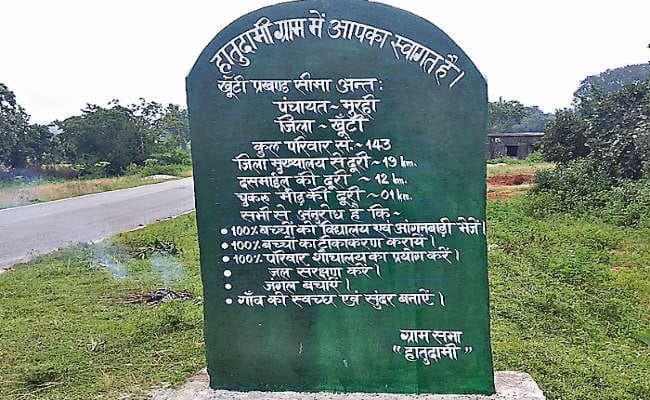 हातुदामी ग्राम में आपका स्वागत है।
खूँटी प्रखण्ड सीमा अन्त:
पंचायत~ मुरही
जिला~ खूँटी
कुल परिवार से~ 143
जिला मुख्यालय से दूरी~19 km.
दसमाईल की दूरी ~12 km.
चुकरु मोड़ की दूरी ~01 km.
सभी से अनुरोध है कि~
• 100% बच्चों को विद्यालय एवं आगनबाड़ी भेजें।
• 100% बच्चों का टीकाकरण करायें।
• 100% परिवार शौचालय का प्रयोग करें।
• जल सरक्षण करें।
• जंगल बचायें।
• गाँव को स्वच्छ एवं सुंदर बनाएँ।
ग्राम सभा
"हातुदामी"